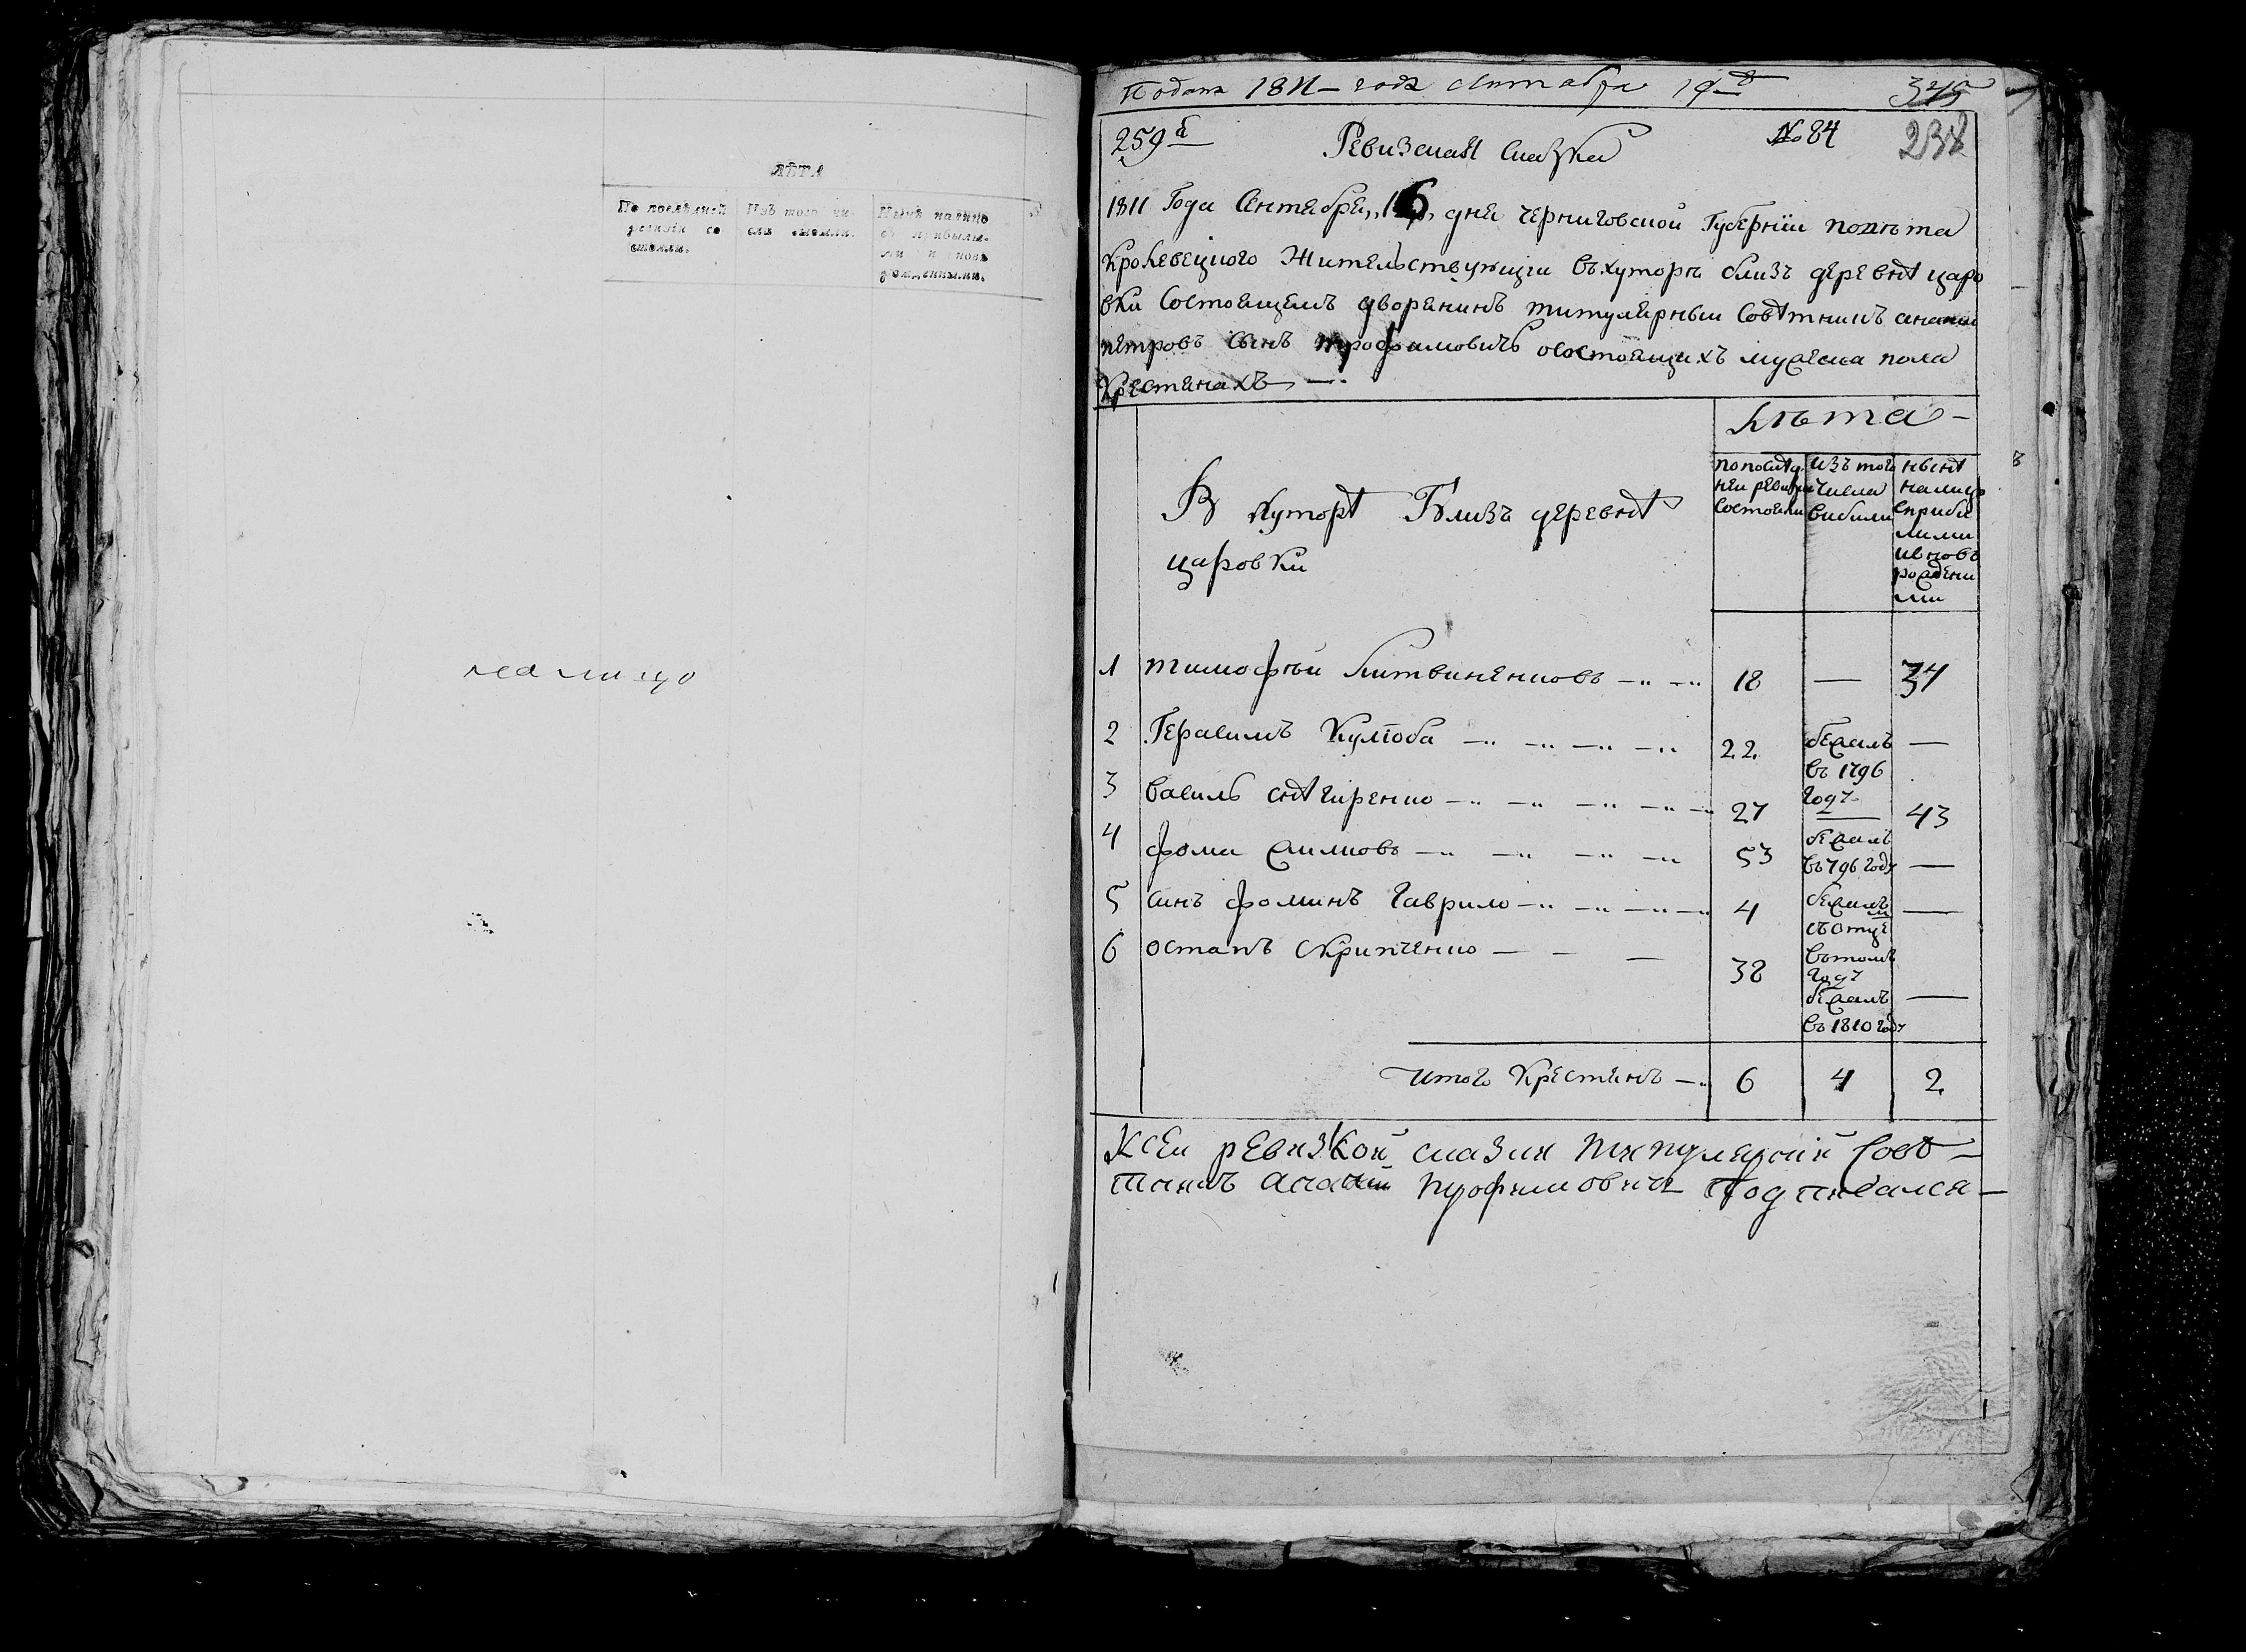 ЛѢТА
По послѣдней ревизіи состояли.
Изъ того числа выбыли.
Нынѣ налицо съ прибылыми и вновь рожденными.
на лицо
Подана 1811 года Октября 19
349
259
Ревизская сказка
№ 84
238
1811 Года Сентября 16 дня Черниговской Губерніи повѣта
Кролевецкого Жительствующги въ хуторѣ близъ деревнѣ царо
вки Состоящемъ дворянинъ титулярныи Совѣтникъ ананій
петровъ Сынъ трофимовичъ осостоящихъ мужеска пола
Крестянахъ
Лѣта
В хуторѣ Близъ деревнѣ
царовки
попослѣд
неи ревизіи
Состояли
изъ того
числа
вибили
нынѣ
налицо
Сприби
лими
ивновь
рождени
ми
1 тимофѣи Литвиненковъ 18 — 34
2 Герасимъ Кулюба 22 бежалъ въ 1796 году —
3 василь снѣгиренко 27 — 43
4 фома Климовъ 53 бежалъ въ 796 году —
5 синъ фоминъ Гаврило 4 бежалъ съ отцемъ вътомъ году —
6 остапъ скрипченко 38 бежалъ въ 1810 году —
итого Крестянъ 6 4 2
Ксеи ревизкой сказки титулярній Совѣ
тникъ ананій трофимовичъ подписался